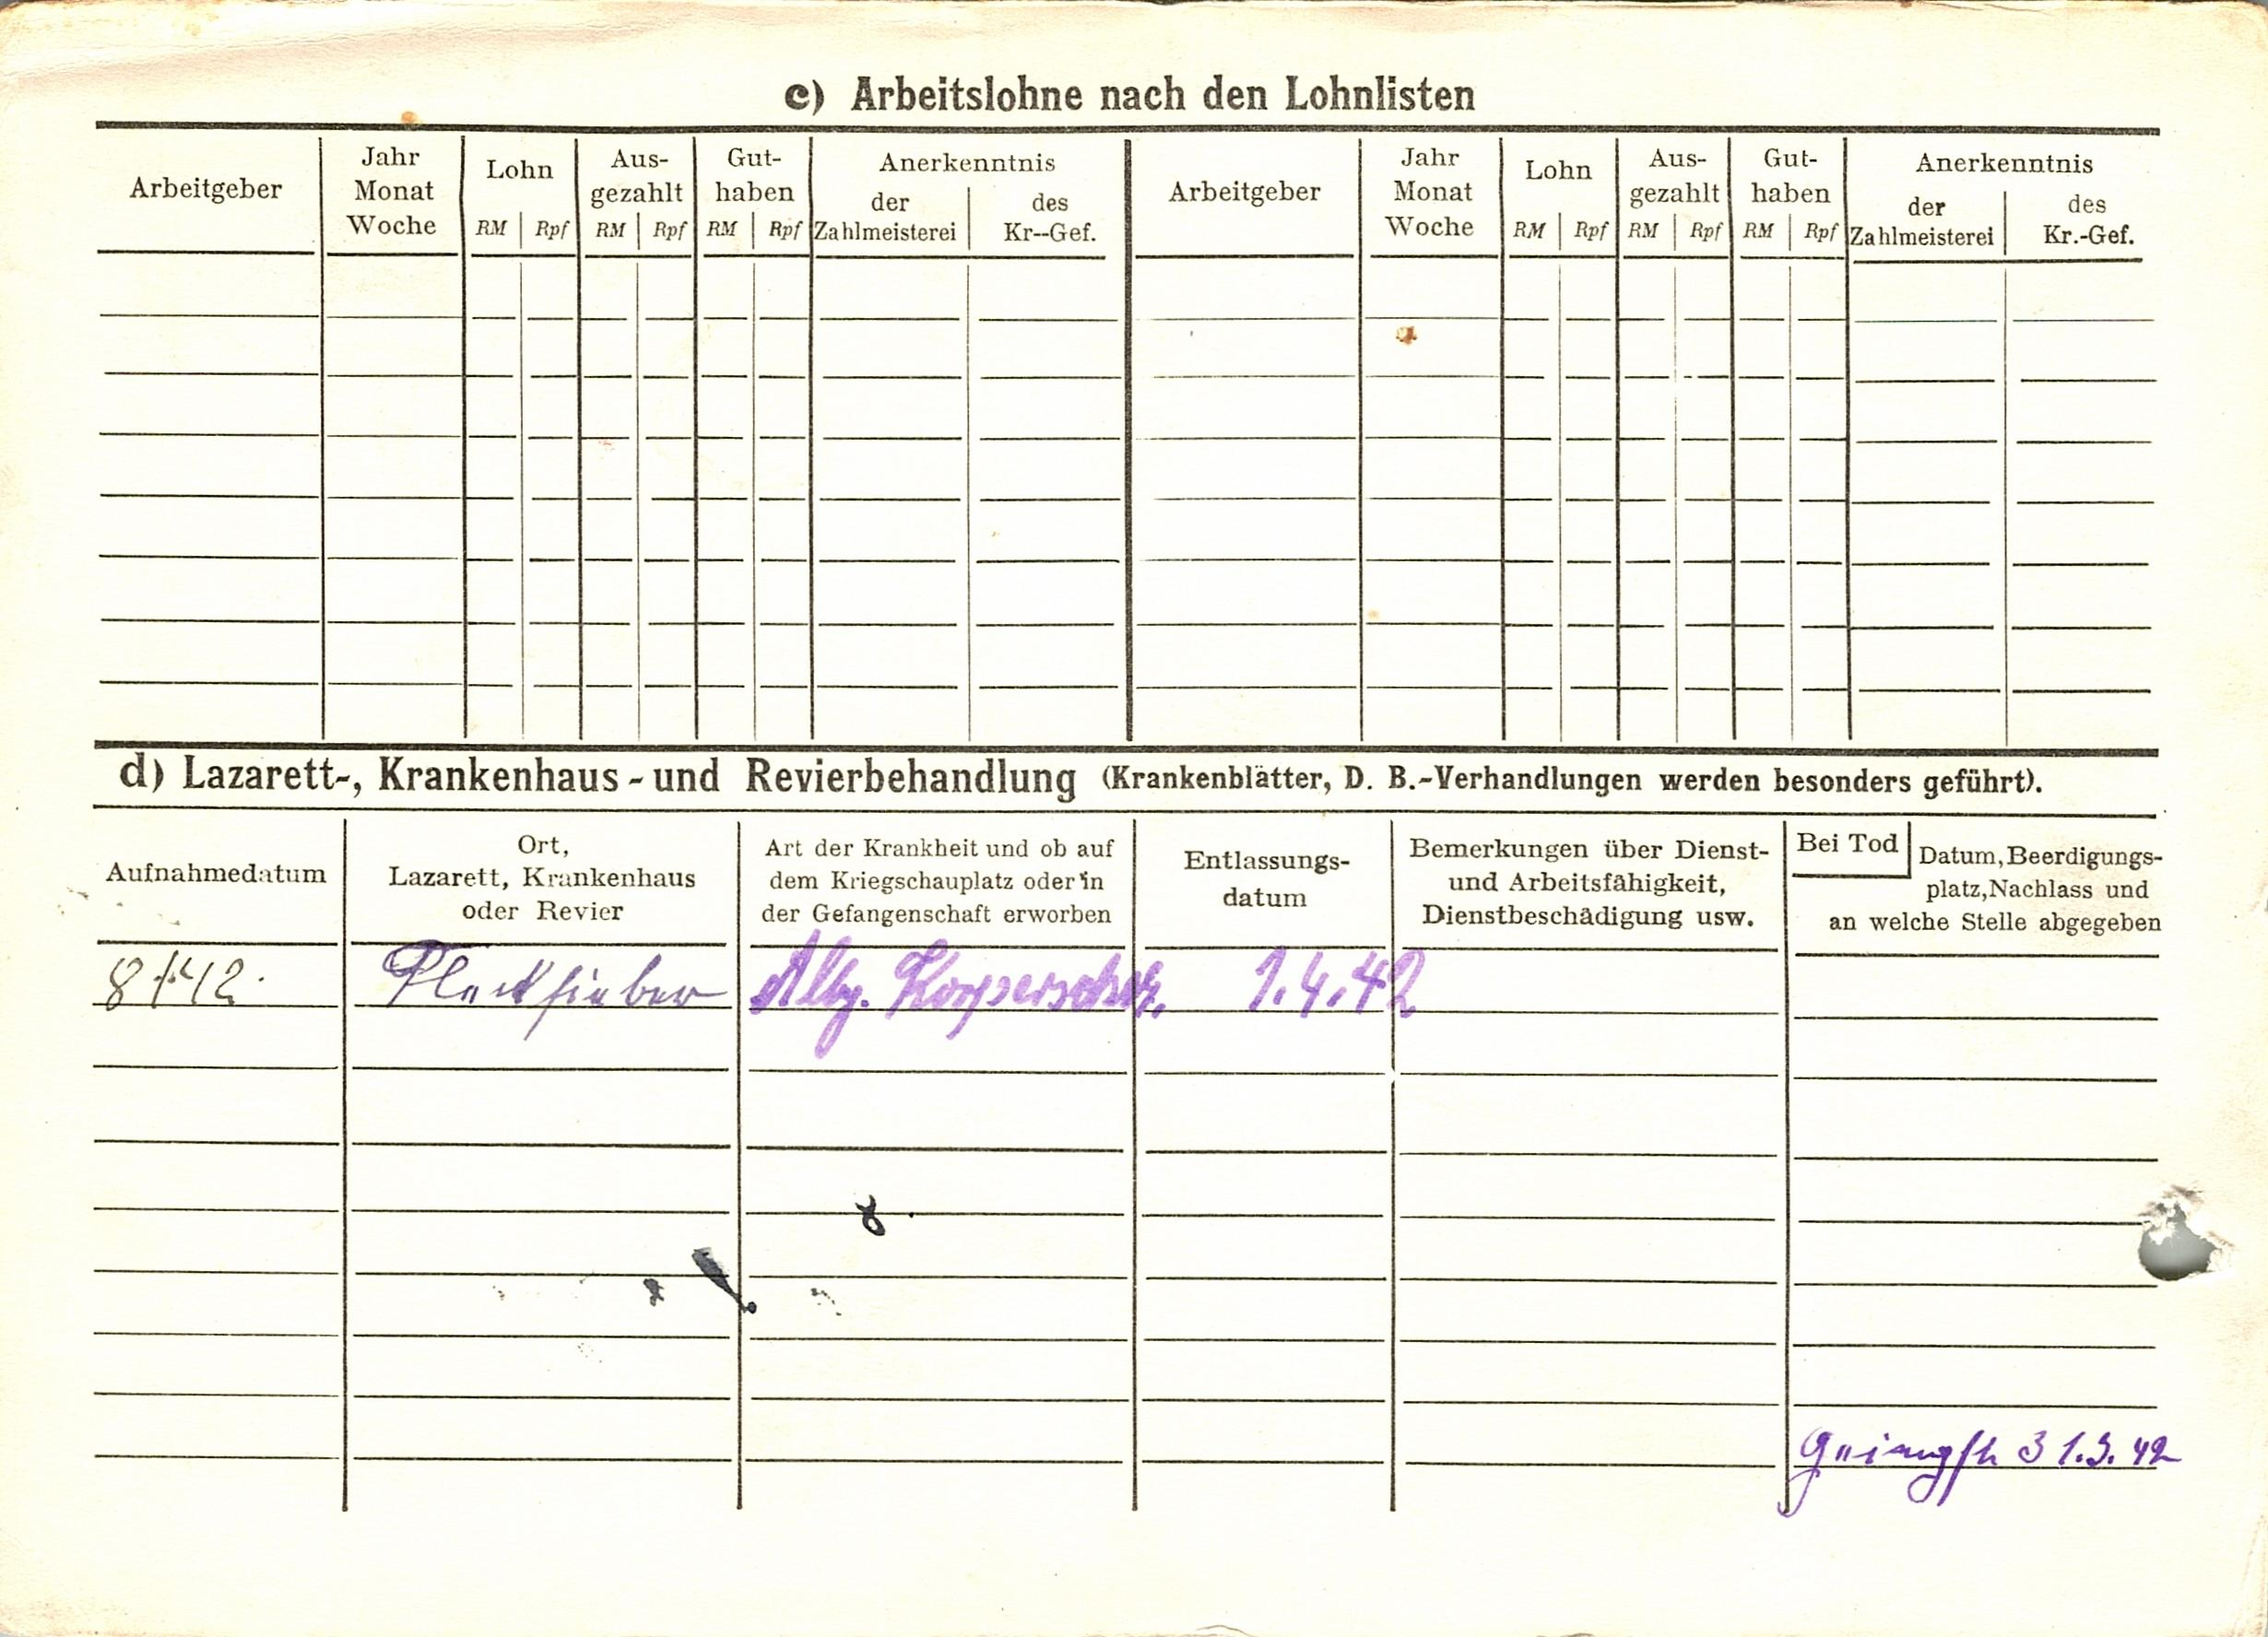 c) Arbeitslohne nach den Lohnlisten
Arbeitgeber
Jahr
Monat
Woche
Lohn
RM Rpf
Aus-
gezahlt
RM Rpf
Gut-
haben
RM Rpf
Anerkenntnis
der
Zahlmeisterei
des
Kr--Gef.
Arbeitgeber
Jahr
Monat
Woche
Lohn
RM Rpf
Aus-
gezahlt
RM Rpf
Gut-
haben
RM Rpf
Anerkenntnis
der
Zahlmeisterei
des
Kr.-Gef.
d) Lazarett-, Krankenhaus - und Revierbehandlung (Krankenblätter, D. B.-Verhandlungen werden besonders geführt).
Aufnahmedatum
Ort,
Lazarett, Krankenhaus
oder Revier
Art der Krankheit und ob auf
dem Kriegschauplatz oder in
der Gefangenschaft erworben
Entlassungs-
datum
Bemerkungen über Dienst-
und Arbeitsfähigkeit,
Dienstbeschädigung usw.
Bei Tod
Datum, Beerdigungs-
platz, Nachlass und
an welche Stelle abgegeben
Fleckfieber
Allg. 1.4.42
42